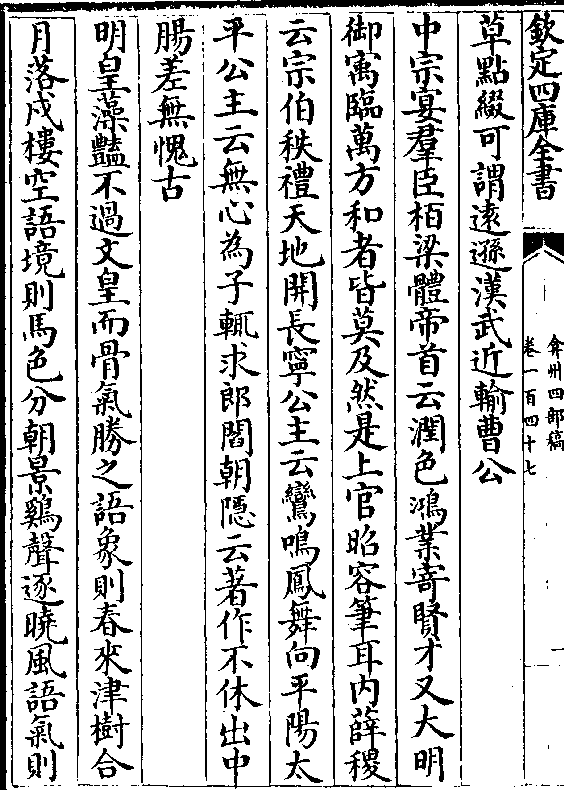 欽定四庫全書
弇州四部稿
卷一百四十七
一
草點綴可謂遠遜漢武近輸曹公
中宗宴羣臣栢梁體帝首云潤色鴻業寄賢才又大明
御㝢臨萬方和者皆莫及然是上官昭容筆耳内薛稷
云宗伯秩禮天地開長寧公主云鸞鳴鳳舞向平陽太
平公主云無心為子輒求郎閻朝隠云著作不休出中
腸差無愧古
明皇藻豔不過文皇而骨氣勝之語象則春來津樹合
月落戍樓空語境則馬色分朝景鷄聲逐曉風語氣則